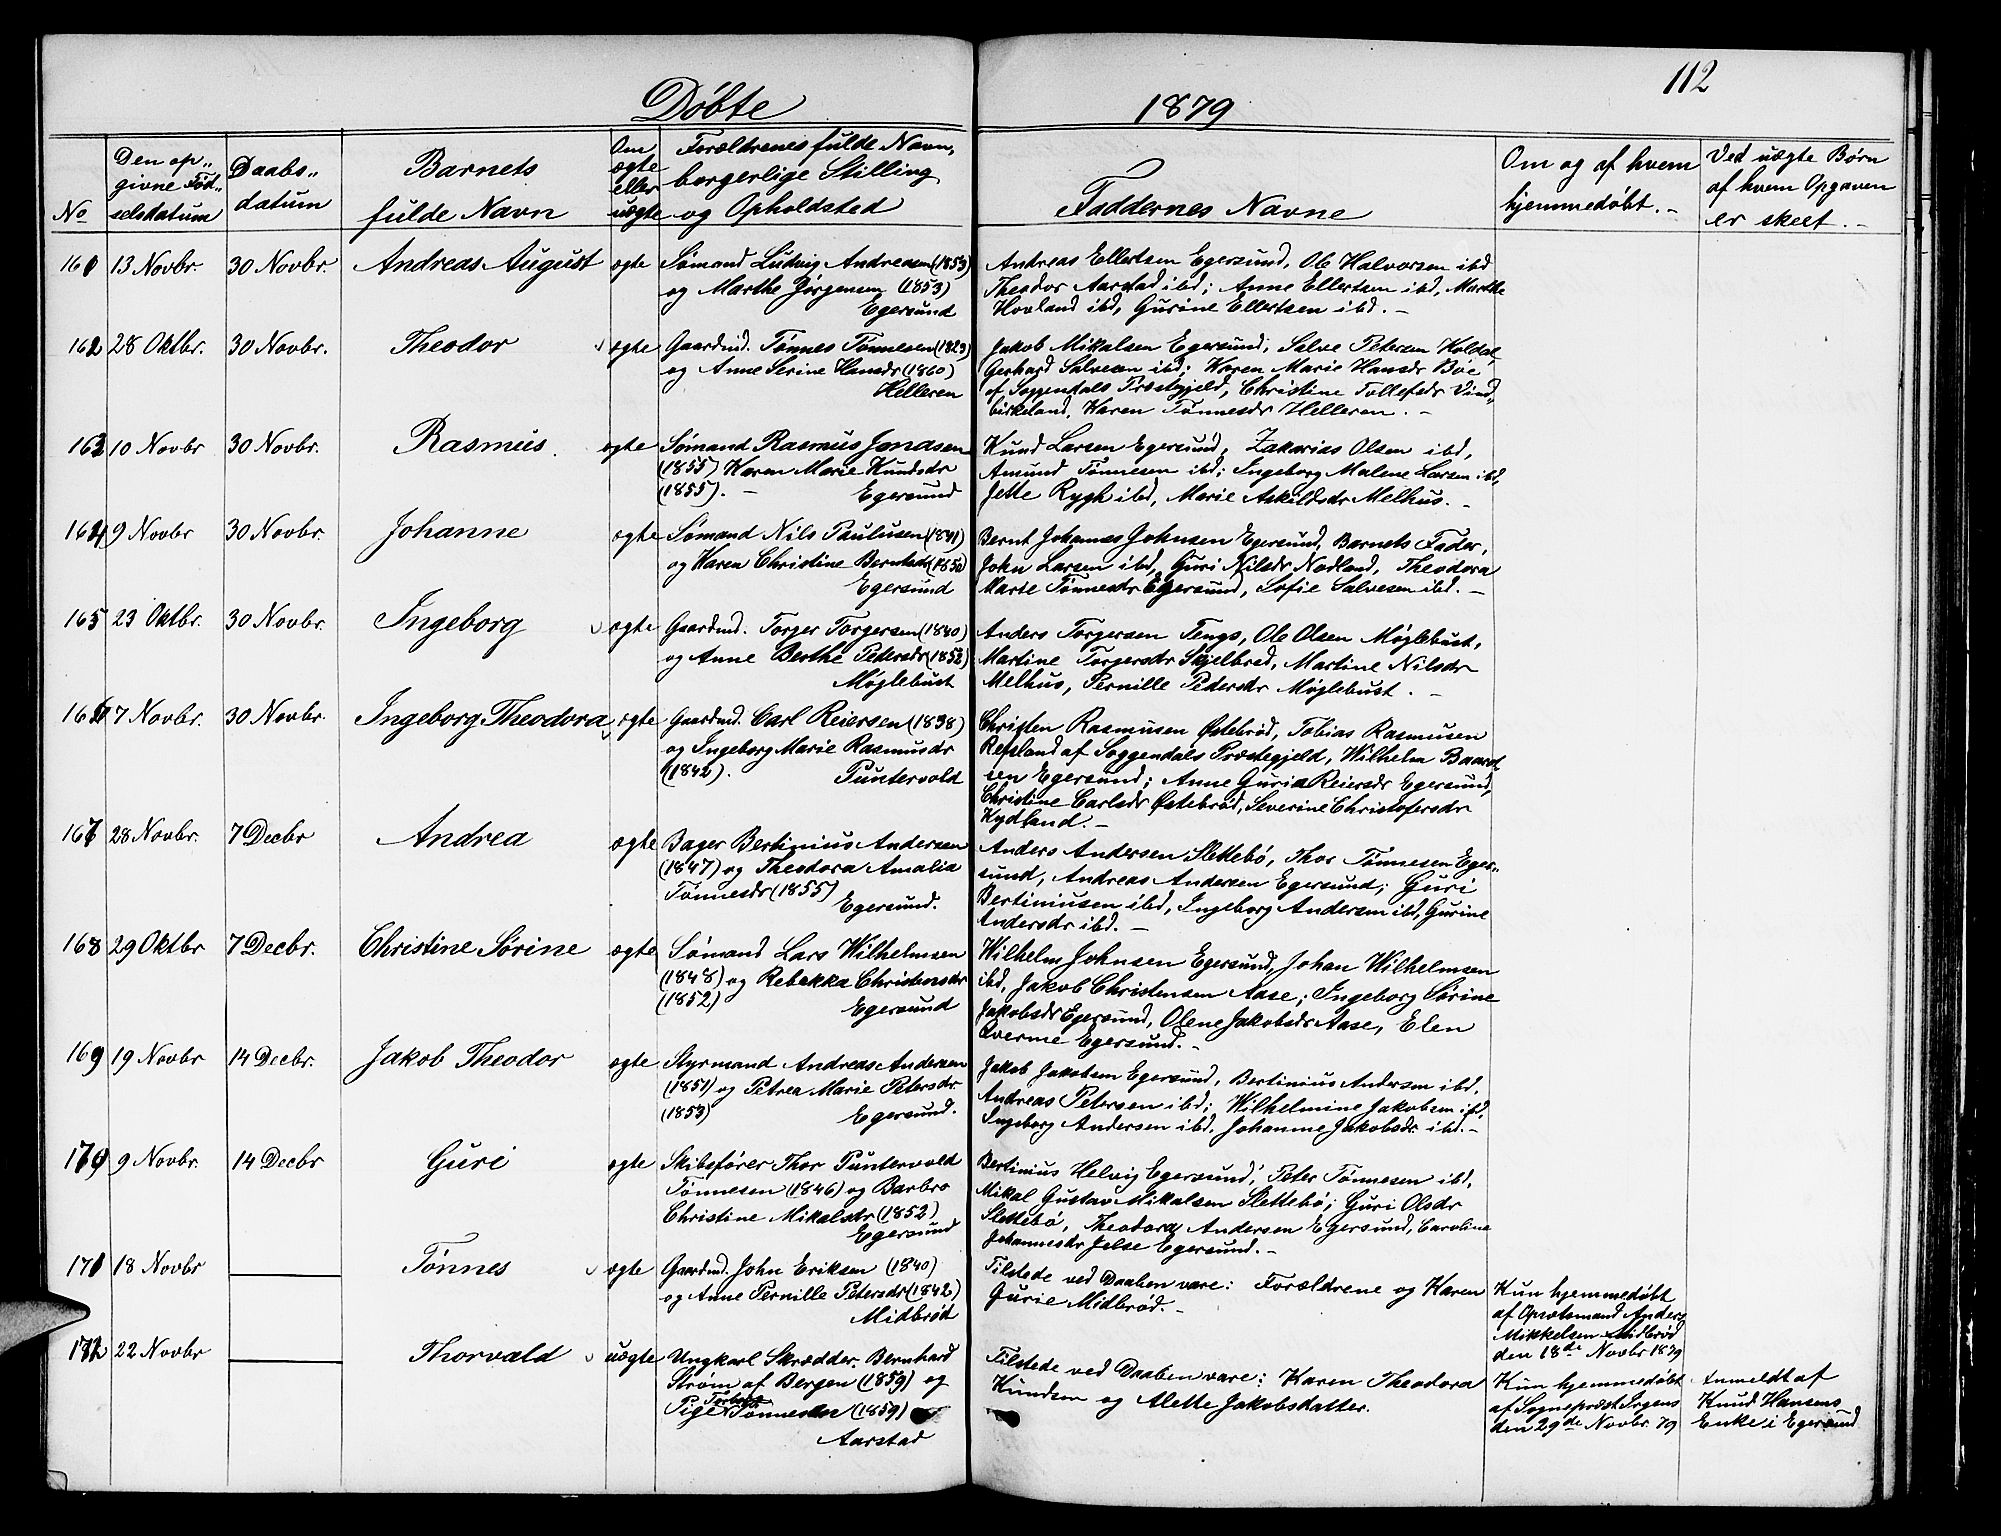 112
Døbte 1879
No
Den op-
givne Fød-
selsdatum
Daabs-
datum
Barnets
fulde Navn
Om
ægte
eller
uægte
Forældrenes fulde Navn,
borgerlige Stilling
og Opholdsted
Faddernes Navne
Om og af hvem
hjemmedøbt. -
Ved uægte Børn
af hvem Opgaven
er skeet. -
161 13 Novbr. 30 Novbr. Andreas August ægte
Sømand Ludvig Andreasen (1853)
og Marthe Jørgensen (1853)
Egersund
Andreas Ellertsen Egersund, Ole Halvorsen ibd
Theodor Aarstad ibd; Anne Ellertsen ibd, Marthe
Hovland ibd, Gurine Ellertsen ibd. -
162 28 Oktbr. 30 Novbr. Theodor ægte
Gaardmd. Tønnes Tønnesen (1823)
og Anne Serine Hansdr (1860)
Helleren
Jakob Mikalsen Egersund, Salve Petersen Koldal,
Gerhard Salvesen ibd; Karen Marie Hansdr Boe
af Soggendals Præstegjeld, Christine Tollefsdr Vind-
birkeland, Karen Tønnesdr Helleren. -
163 10 Novbr 30 Novbr. Rasmus ægte
Sømand Rasmus Jonassen
(1855) Karen Marie Knudsdr
(1855). - Egersund
Knud Larsen Egersund, Zakarias Olsen ibd,
Amund Tønnesen ibd; Ingeborg Malene Larsen ibd,
Jette Rygh ibd, Marie Askildsdr Melhus. -
164 9 Novbr 30 Novbr. Johanne ægte
Sømand Nils Paulusen (1841)
og Karen Christine Berntsdr (1850)
Egersund
Bernt Johannes Johnsen Egersund, Barnets Fader,
John Larsen ibd, Guri Nilsdr Nodland, Theodora
Marte Tønnesdr Egersund, Sofie Salvesen ibd. -
165 23 Oktbr. 30 Novbr. Ingeborg ægte
Gaardmd. Torger Torgersen (1840)
og Anne Berthe Pedersdr (1852)
Møglebust
Anders Torgersen Tengs, Ole Olsen Møglebust,
Martine Torgersdr Skjelbred, Martine Nilsdr
Melhus, Pernille Pedersdr Møglebust. -
166 7 Novbr. 30 Novbr. Ingeborg Theodora ægte
Gaardmd. Carl Reiersen (1838)
og Ingeborg Marie Rasmusdr
(1842). Puntervold
Christen Rasmusen Østebrød, Tobias Rasmusen
Refsland af Soggendals Præstegjeld, Wilhelm Baard-
sen Egersund; Anne Guria Reiersdr Egersund,
Christine Carlsdr Østebrød, Severine Christofersdr
Kydland. -
167 28 Novbr. 7 Decbr Andrea ægte
Bager Bertinius Andersen
(1847) og Theodora Amalia
Tønnesdr (1855)
Egersund.
Anders Andersen Slettebø, Thor Tønnesen Eger-
sund, Andreas Andersen Egersund; Guri
Bertiniusen ibd, Ingeborg Andersen ibd, Gurine
Andersdr ibd. -
168 29 Oktbr 7 Decbr. Christine Sørine ægte
Sømand Lars Wilhelmsen
(1848) og Rebekka Christensdr
(1852) Egersund
Wilhelm Johnsen Egersund, Johan Wilhelmsen
ibd, Jakob Christensen Aase; Ingeborg Sørine
Jakobsdr Egersund, Olene Jakobsdr Aase, Elen
Qverme Egersund. -
169 19 Novbr 14 Decbr. Jakob Theodor ægte
Styrmand Andreas Andersen
(1851) og Petrea Marie Petersdr.
(1853) Egersund.
Jakob Jakobsen Egersund, Bertinius Andersen ibd,
Andreas Petersen ibd; Wilhelmine Jakobsen ibd,
Ingeborg Andersen ibd, Johanne Jakobsdr. ibd. -
170 9 Novbr. 14 Decbr Guri ægte
Skibsfører Thor Puntervold
Tønnesen (1846) og Barbro
Christine Mikalsdr (1852)
Egersund
Bertinius Helvig Egersund, Peter Tønnesen ibd,
Mikal Gustav Mikalsen Slettebø; Guri Olsdr
Slettebø, Theodora Andersen Egersund, Caroline
Johannesdr Jelse Egersund. -
171 18 Novbr Tønnes ægte
Gaardmd. John Eriksen (1840)
og Anne Pernille Petersdr (1842)
Midbrød
Tilstede ved Daaben vare: Forældrene og Karen
Gurie Midbrød. -
Kun hjemmedøbt
af Opsætsmand Anders
Mikkelsen Midbrød
den 18de Novbr 1879
172 22 Novbr Thorvald uægte
Ungkarl Skrædder Bernhard
Strøm af Bergen (1859) og
Pige Tønnesen (1859)
Aarstad
Tilstede ved Daaben vare: Karen Theodora
Knudsen og Alette Jakobsdatter.
Kun hjemmedøbt
af Sognepræst Irgens
den 29de Novbr. 79
Anmeldt af
Knud Hansens
Enke i Egersund